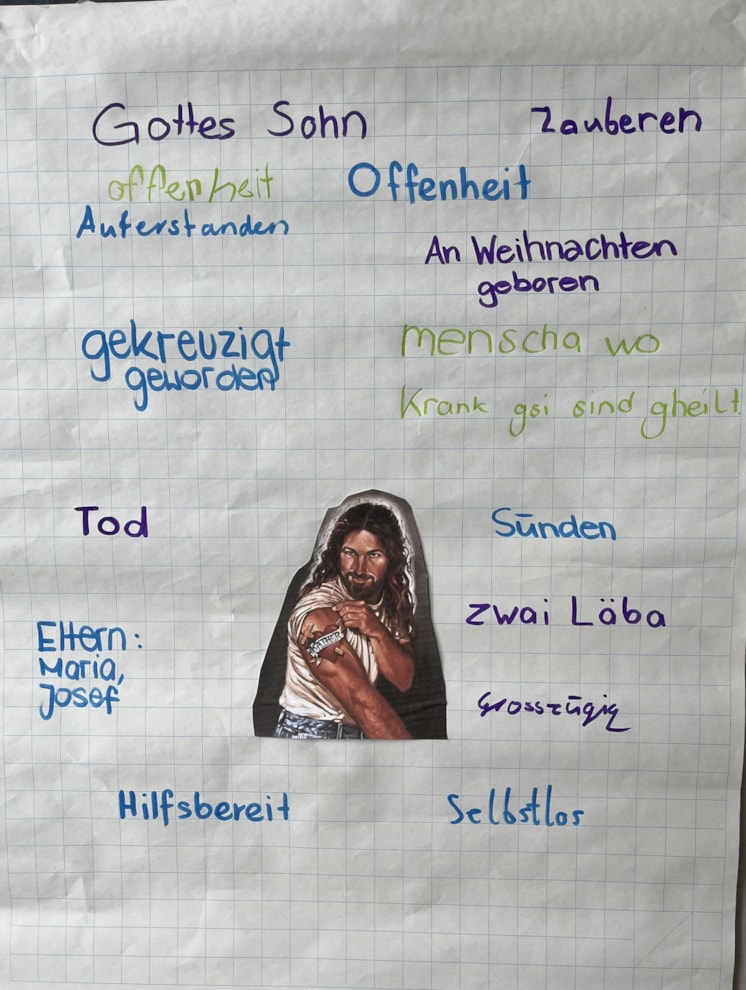 Gottes Sohn
Zauberen
offenheit
Offenheit
Auferstanden
An Weihnachten
geboren
gekreuzigt
geworden
menscha wo
Krank gsi sind gheilt
Tod
Sünden
Eltern:
Maria,
Josef
zwai Läba
Grosszügig
FATHER
Hilfsbereit
Selbstlos